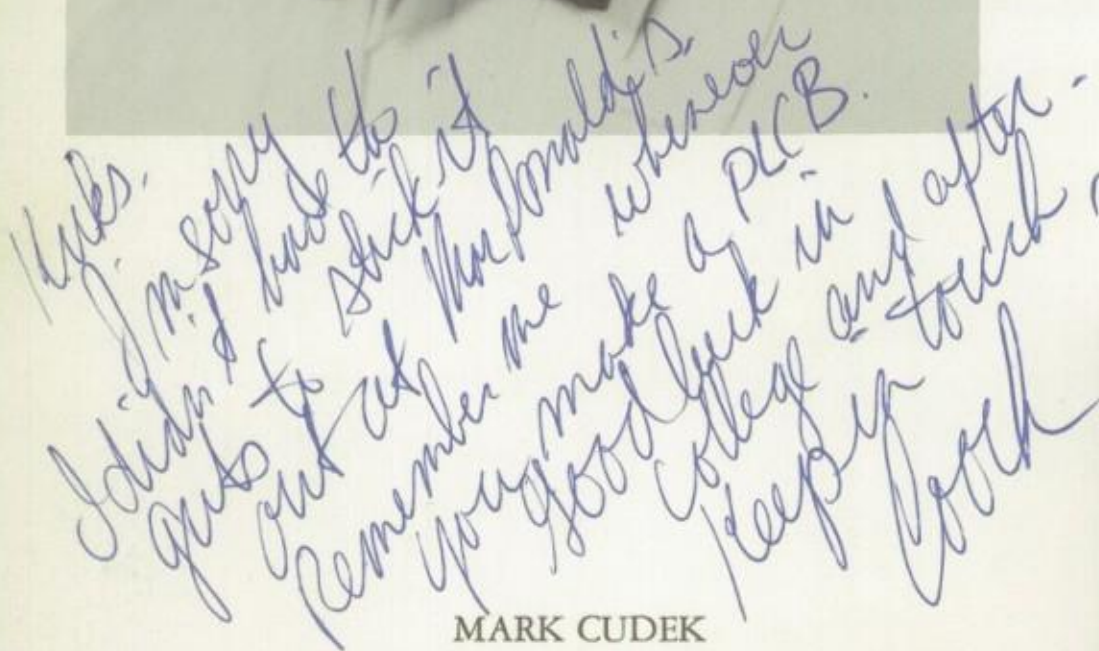 I'm sorry
I didn't have the
guts to stick it
out at MacDonald's.
Remember me whenever
you make a PLCB.
Good luck in
college and after.
Keep in touch,
MARK CUDEK